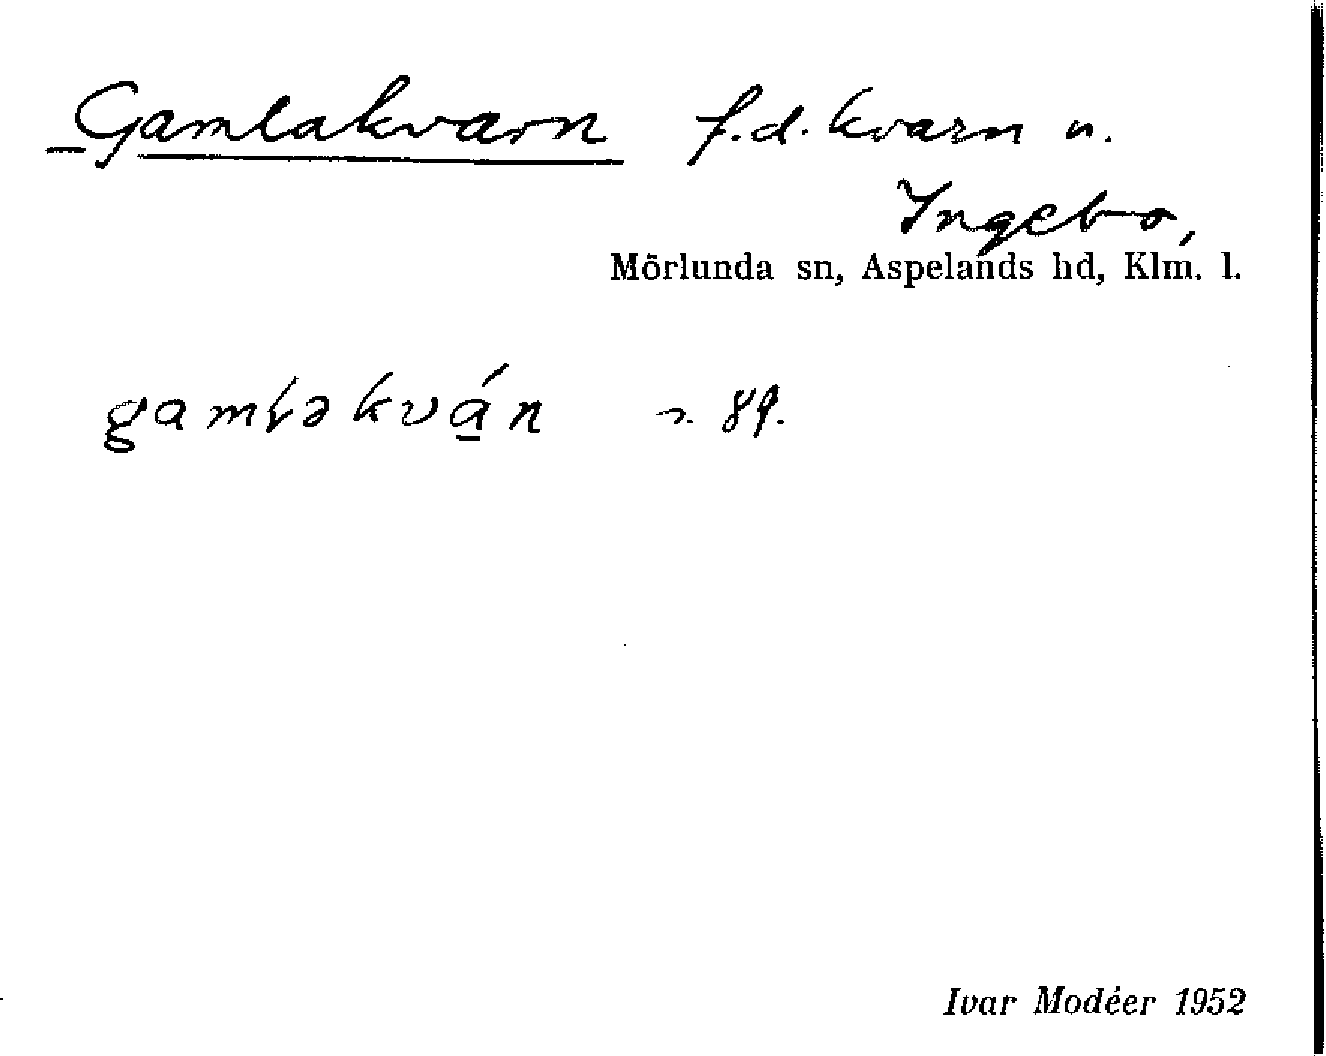 Gamlakvarn f.d. kvarn u.
Ingebo,
Mörlunda sn, Aspelands hd, Klm. l.
gamɫəkvá̱n s. 89.
Ivar Modéer 1952